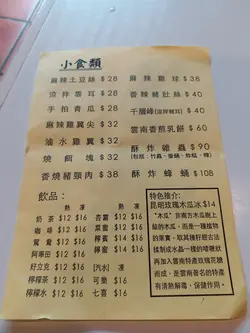 小食類
麻辣土豆絲 $28
涼拌雲耳 $28
手拍青瓜 $28
麻辣雞翼尖 $32
滷水雞翼 $32
燒餌塊 $32
香燒豬頸肉 $38
麻辣雞球 $38
香辣豬肚絲 $40
千層峰(涼拌豬耳) $40
雲南香煎乳餅 $60
酥炸雜蟲 $90
酥炸蜂蛹 $108
飲品：
熱 凍
奶茶 $12 $16
咖啡 $12 $16
鴛鴦 $12 $16
阿華田 $12 $16
好立克 $12 $16
檸檬茶 $12 $16
檸檬水 $12 $16
熱 凍
杏霜 $12 $16
菜蜜 $12 $16
檸蜜 $12 $16
檸賓 $12 $16
[汽水] 凍
可樂 $16
七喜 $16
特色推介:
昆明玫瑰木瓜冰 $14
"木瓜" 非南方木瓜樹上
結的木瓜，而是一種植物
的果實，取其種籽經古法
揉制成一種天然的啫喱狀
再加入雲南特產玫瑰花糖
而成，是雲南著名的特產
有清熱解毒，保健作用。